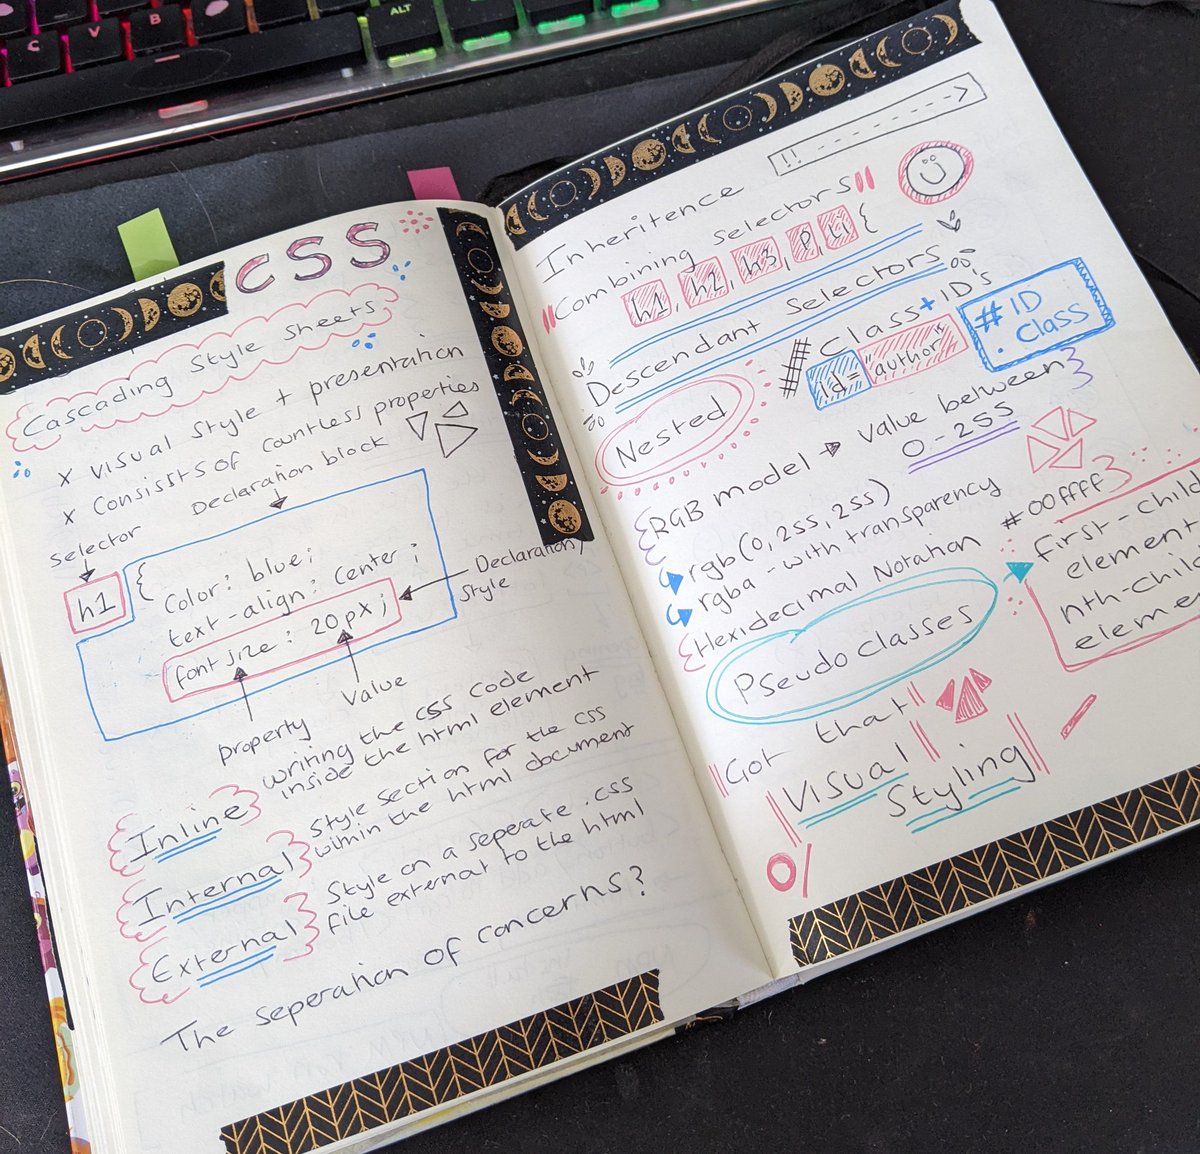 C
V
B
ALT
CSS
Cascading Style Sheets
x visual style + presentation
x consissts of countless properties
Declaration block
Selector
h1
{
Color: blue;
text-align: center;
font size: 20px;
Declaration/
Style
property
Value
Inline
writing the css code
inside the html element
Internal
Style section for the css
within the html document
External
Style on a seperate .css
file external to the html
The seperation of concerns?
!! ------->
Inheritence
"Combining selectors"
h1, h2, h3, p, li {
Descendant Selectors
Nested
# Class + ID's
id= "author"
# ID
. Class
RGB model → value between
0-255
rgb(0, 255, 255)
rgba - with transparency
Hexidecimal Notation
#00ffff
Pseudo classes
first-child
element
nth-child
eleme
Got that
Visual
Styling